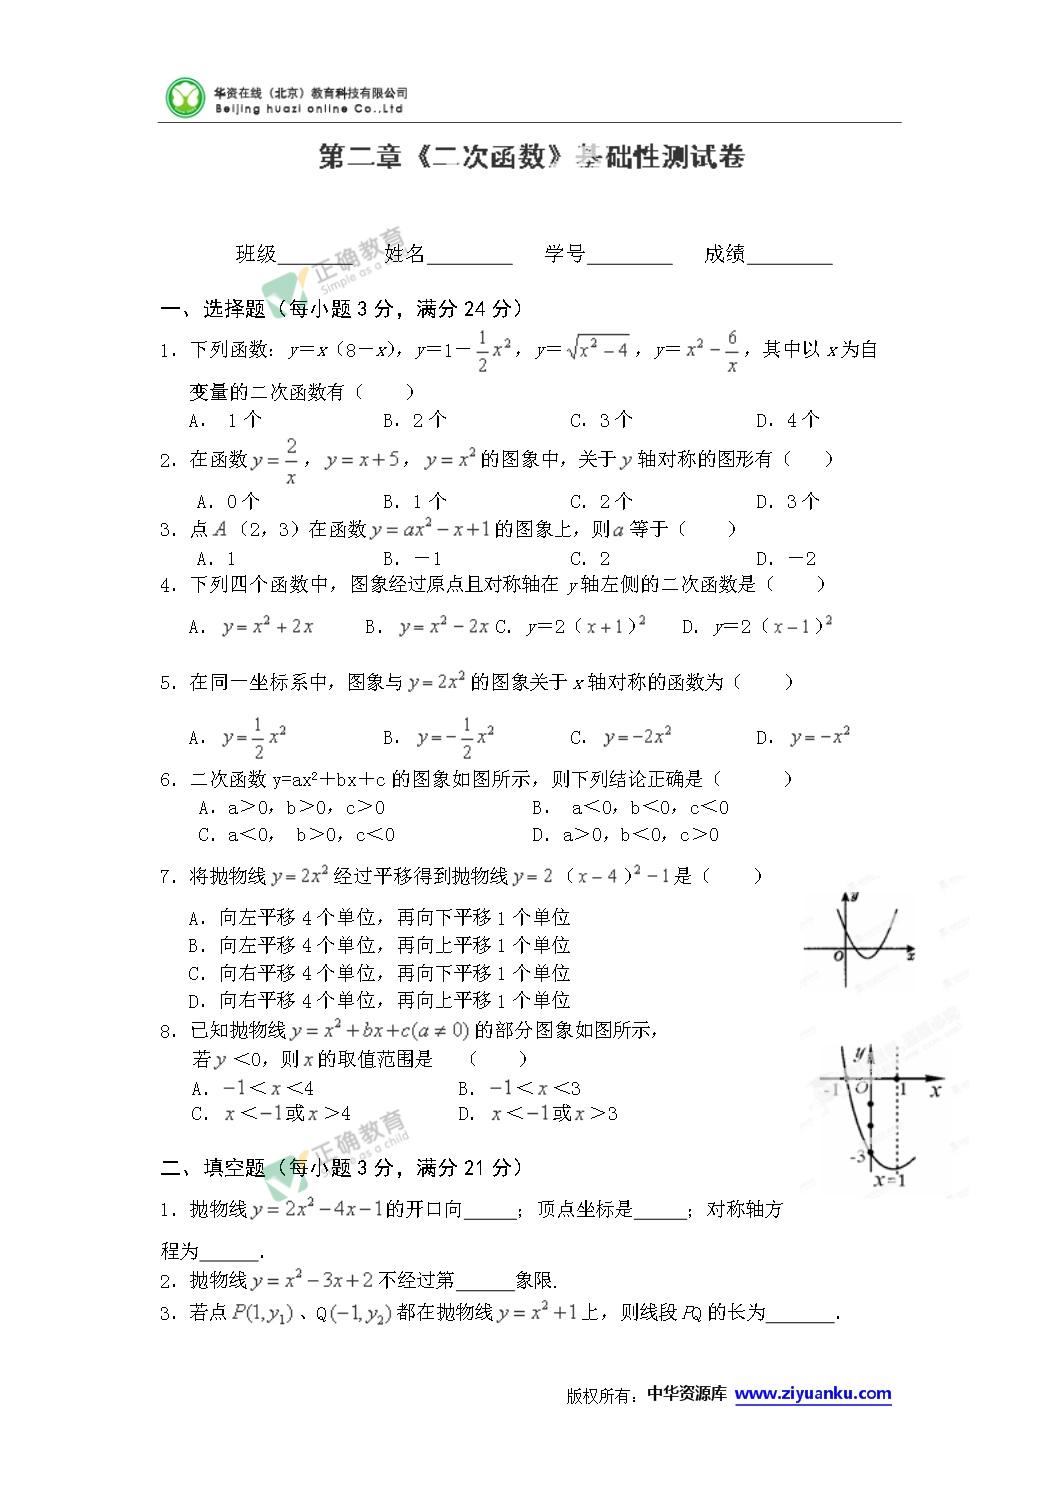 华资在线（北京）教育科技有限公司
Beijing huazi online Co.,Ltd
第二章《二次函数》基础性测试卷
班级________ 姓名________ 学号________ 成绩________
正确教育
Simple as a
一、选择题（每小题3分，满分24分）
1．下列函数：y＝x（8－x），y＝1－\frac{1}{2}x²，y＝\sqrt{x²－4}，y＝x²－\frac{6}{x}，其中以x为自
变量的二次函数有（ ）
A． 1个 B．2个 C．3个 D．4个
2．在函数y＝\frac{2}{x}，y＝x+5，y＝x²的图象中，关于y轴对称的图形有（ ）
A．0个 B．1个 C．2个 D．3个
3．点A（2，3）在函数y＝ax²－x+1的图象上，则a等于（ ）
A．1 B．－1 C．2 D．－2
4．下列四个函数中，图象经过原点且对称轴在y轴左侧的二次函数是（ ）
A．y＝x²+2x B．y＝x²－2x C．y＝2（x+1）² D．y＝2（x－1）²
5．在同一坐标系中，图象与y＝2x²的图象关于x轴对称的函数为（ ）
A．y＝\frac{1}{2}x² B．y＝－\frac{1}{2}x² C．y＝－2x² D．y＝－x²
6．二次函数y=ax²＋bx＋c的图象如图所示，则下列结论正确是（ ）
A．a＞0，b＞0，c＞0 B． a＜0，b＜0，c＜0
C．a＜0， b＞0，c＜0 D．a＞0，b＜0，c＞0
7．将抛物线y＝2x²经过平移得到抛物线y＝2（x－4）²－1是（ ）
A．向左平移4个单位，再向下平移1个单位
B．向左平移4个单位，再向上平移1个单位
C．向右平移4个单位，再向下平移1个单位
D．向右平移4个单位，再向上平移1个单位
y
O x
8．已知抛物线y＝x²+bx+c(a≠0)的部分图象如图所示，
若y＜0，则x的取值范围是 （ ）
A．－1＜x＜4 B．－1＜x＜3
C．x＜－1或x＞4 D．x＜－1或x＞3
y
-1 O 1 x
-3
x=1
正确教育
Simple as a child
二、填空题（每小题3分，满分21分）
1．抛物线y＝2x²－4x－1的开口向_____；顶点坐标是_____；对称轴方
程为______．
2．抛物线y＝x²－3x+2不经过第______象限.
3．若点P(1,y₁)、Q(－1,y₂)都在抛物线y＝x²+1上，则线段PQ的长为_______．
版权所有：中华资源库 www.ziyuanku.com